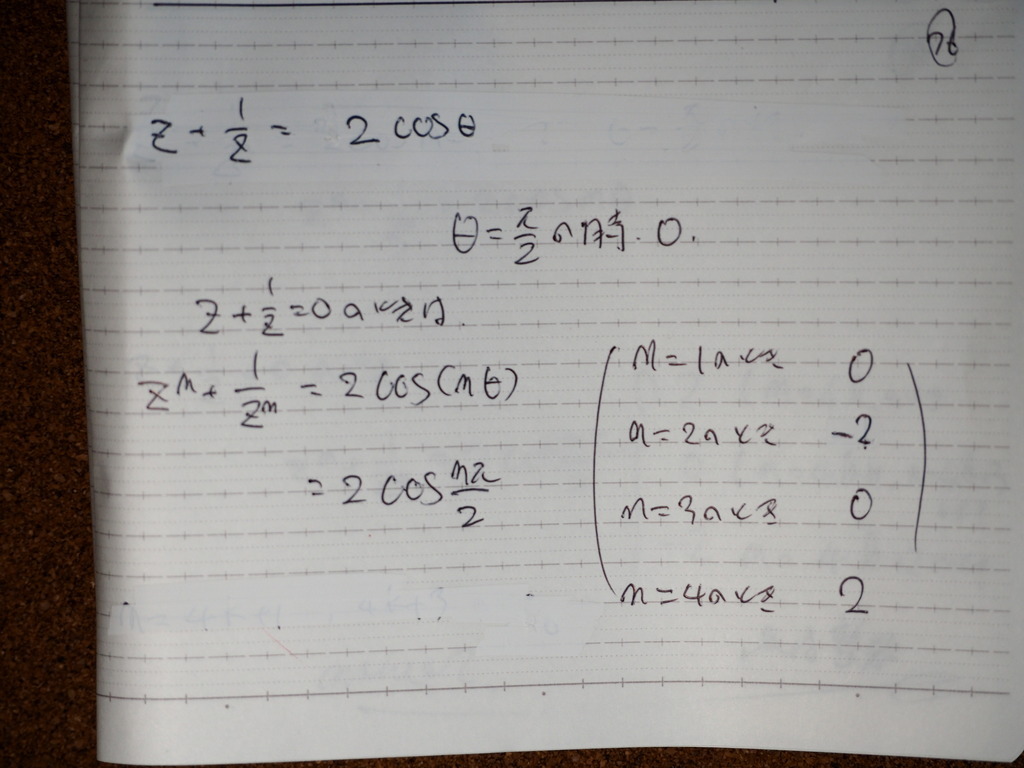 z + 1/z = 2 cosθ
θ = π/2 の時. 0.
z + 1/z = 0 のとき は.
z^n + 1/z^n = 2 cos(nθ)
= 2 cos nπ/2
n=1のとき 0
n=2のとき -2
n=3のとき 0
n=4のとき 2